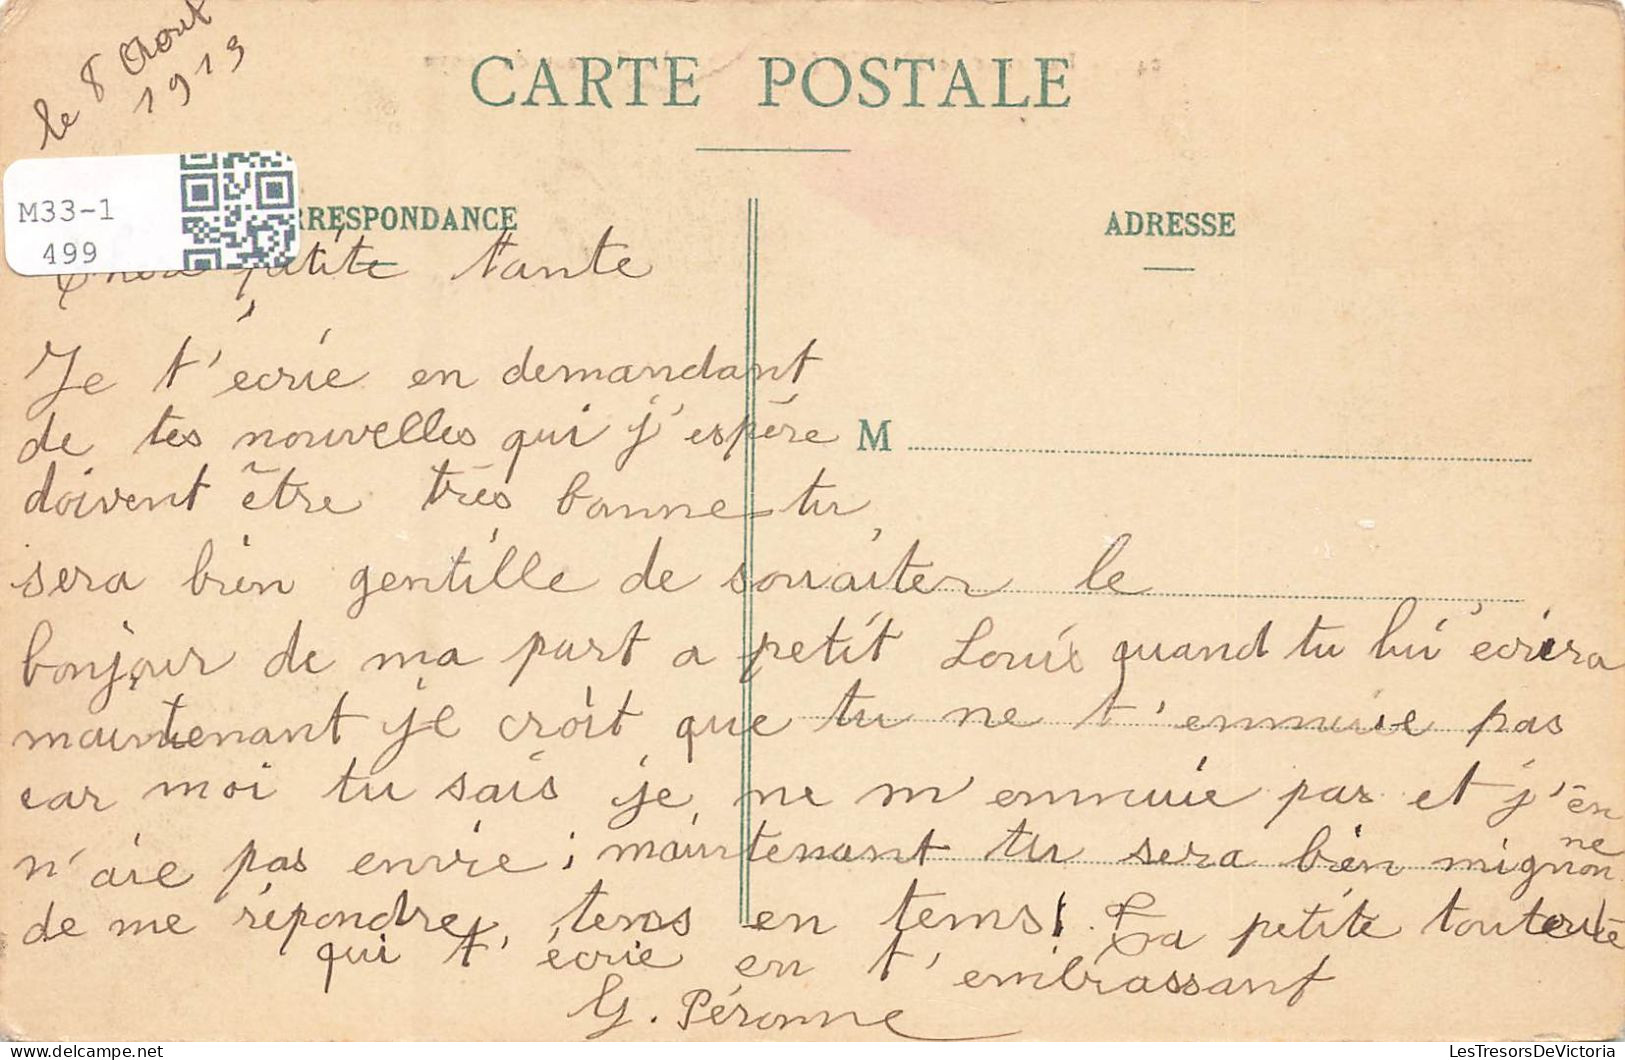 le 8 Aout
1913
CARTE POSTALE
M33-1
499
RRESPONDANCE
ADRESSE
petite tante
Je t'ecrie en demandant
de tes nouvelles qui j'espère
M
doivent être très bonne tu
sera bien gentille de souaiter le
bonjour de ma part a petit Louis quand tu lui écrira
maintenant je croit que tu ne t'ennuie pas
car moi tu sais je ne m'ennuie pas et j'en
n'aie pas envie ; maintenant tu sera bien mignonne
de me répondre, tems en tems! La petite
qui t'écrie en t'embrassant
G. Péronne
LesTresorsDeVictoria